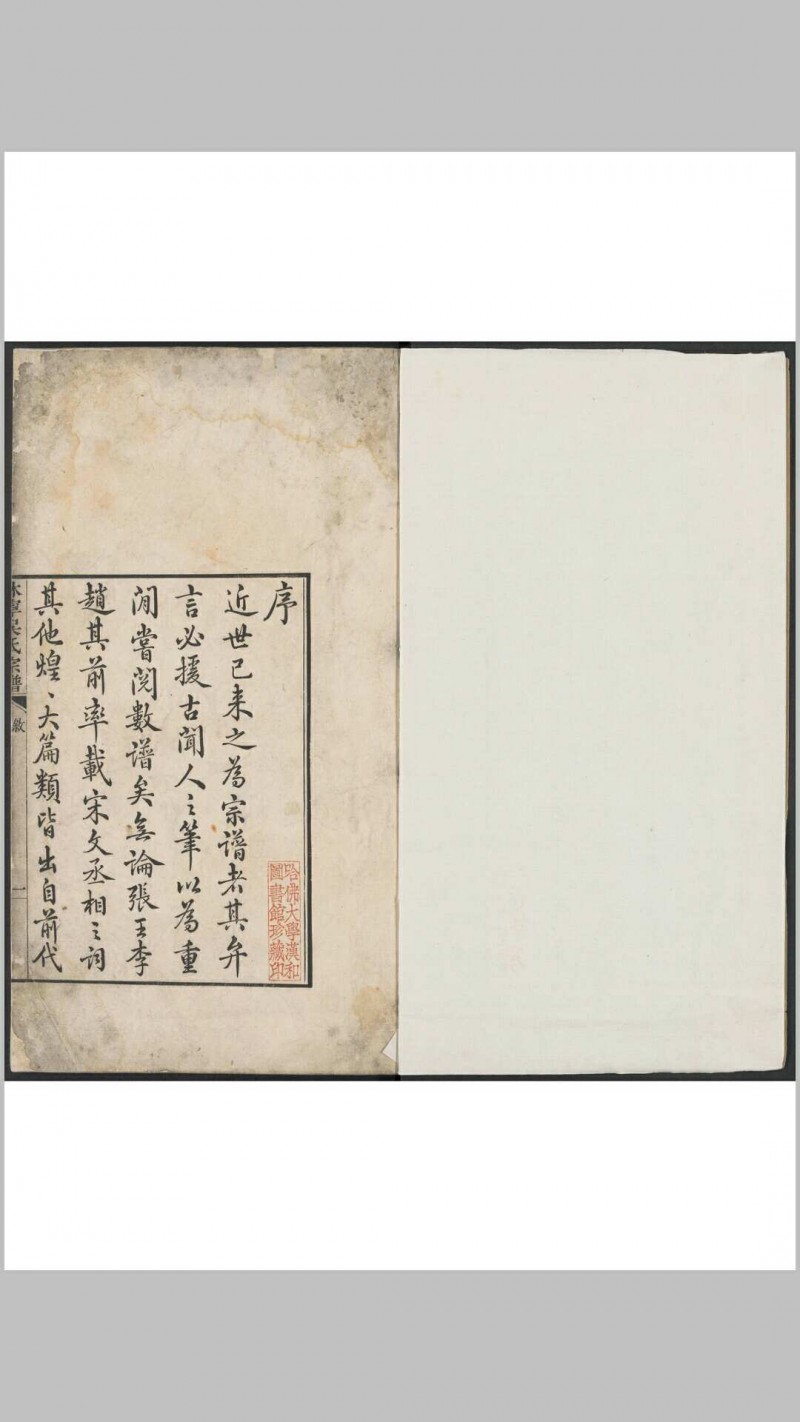 序
近世已来之為宗譜者其弁
言必援古聞人之筆以為重
閒嘗閱數譜矣無論張王李
趙其前率載宋文丞相之詞
其他煌〻大篇類皆出自前代
休寧吳氏宗譜
敘
一
哈佛大學漢和
圖書館珍藏印